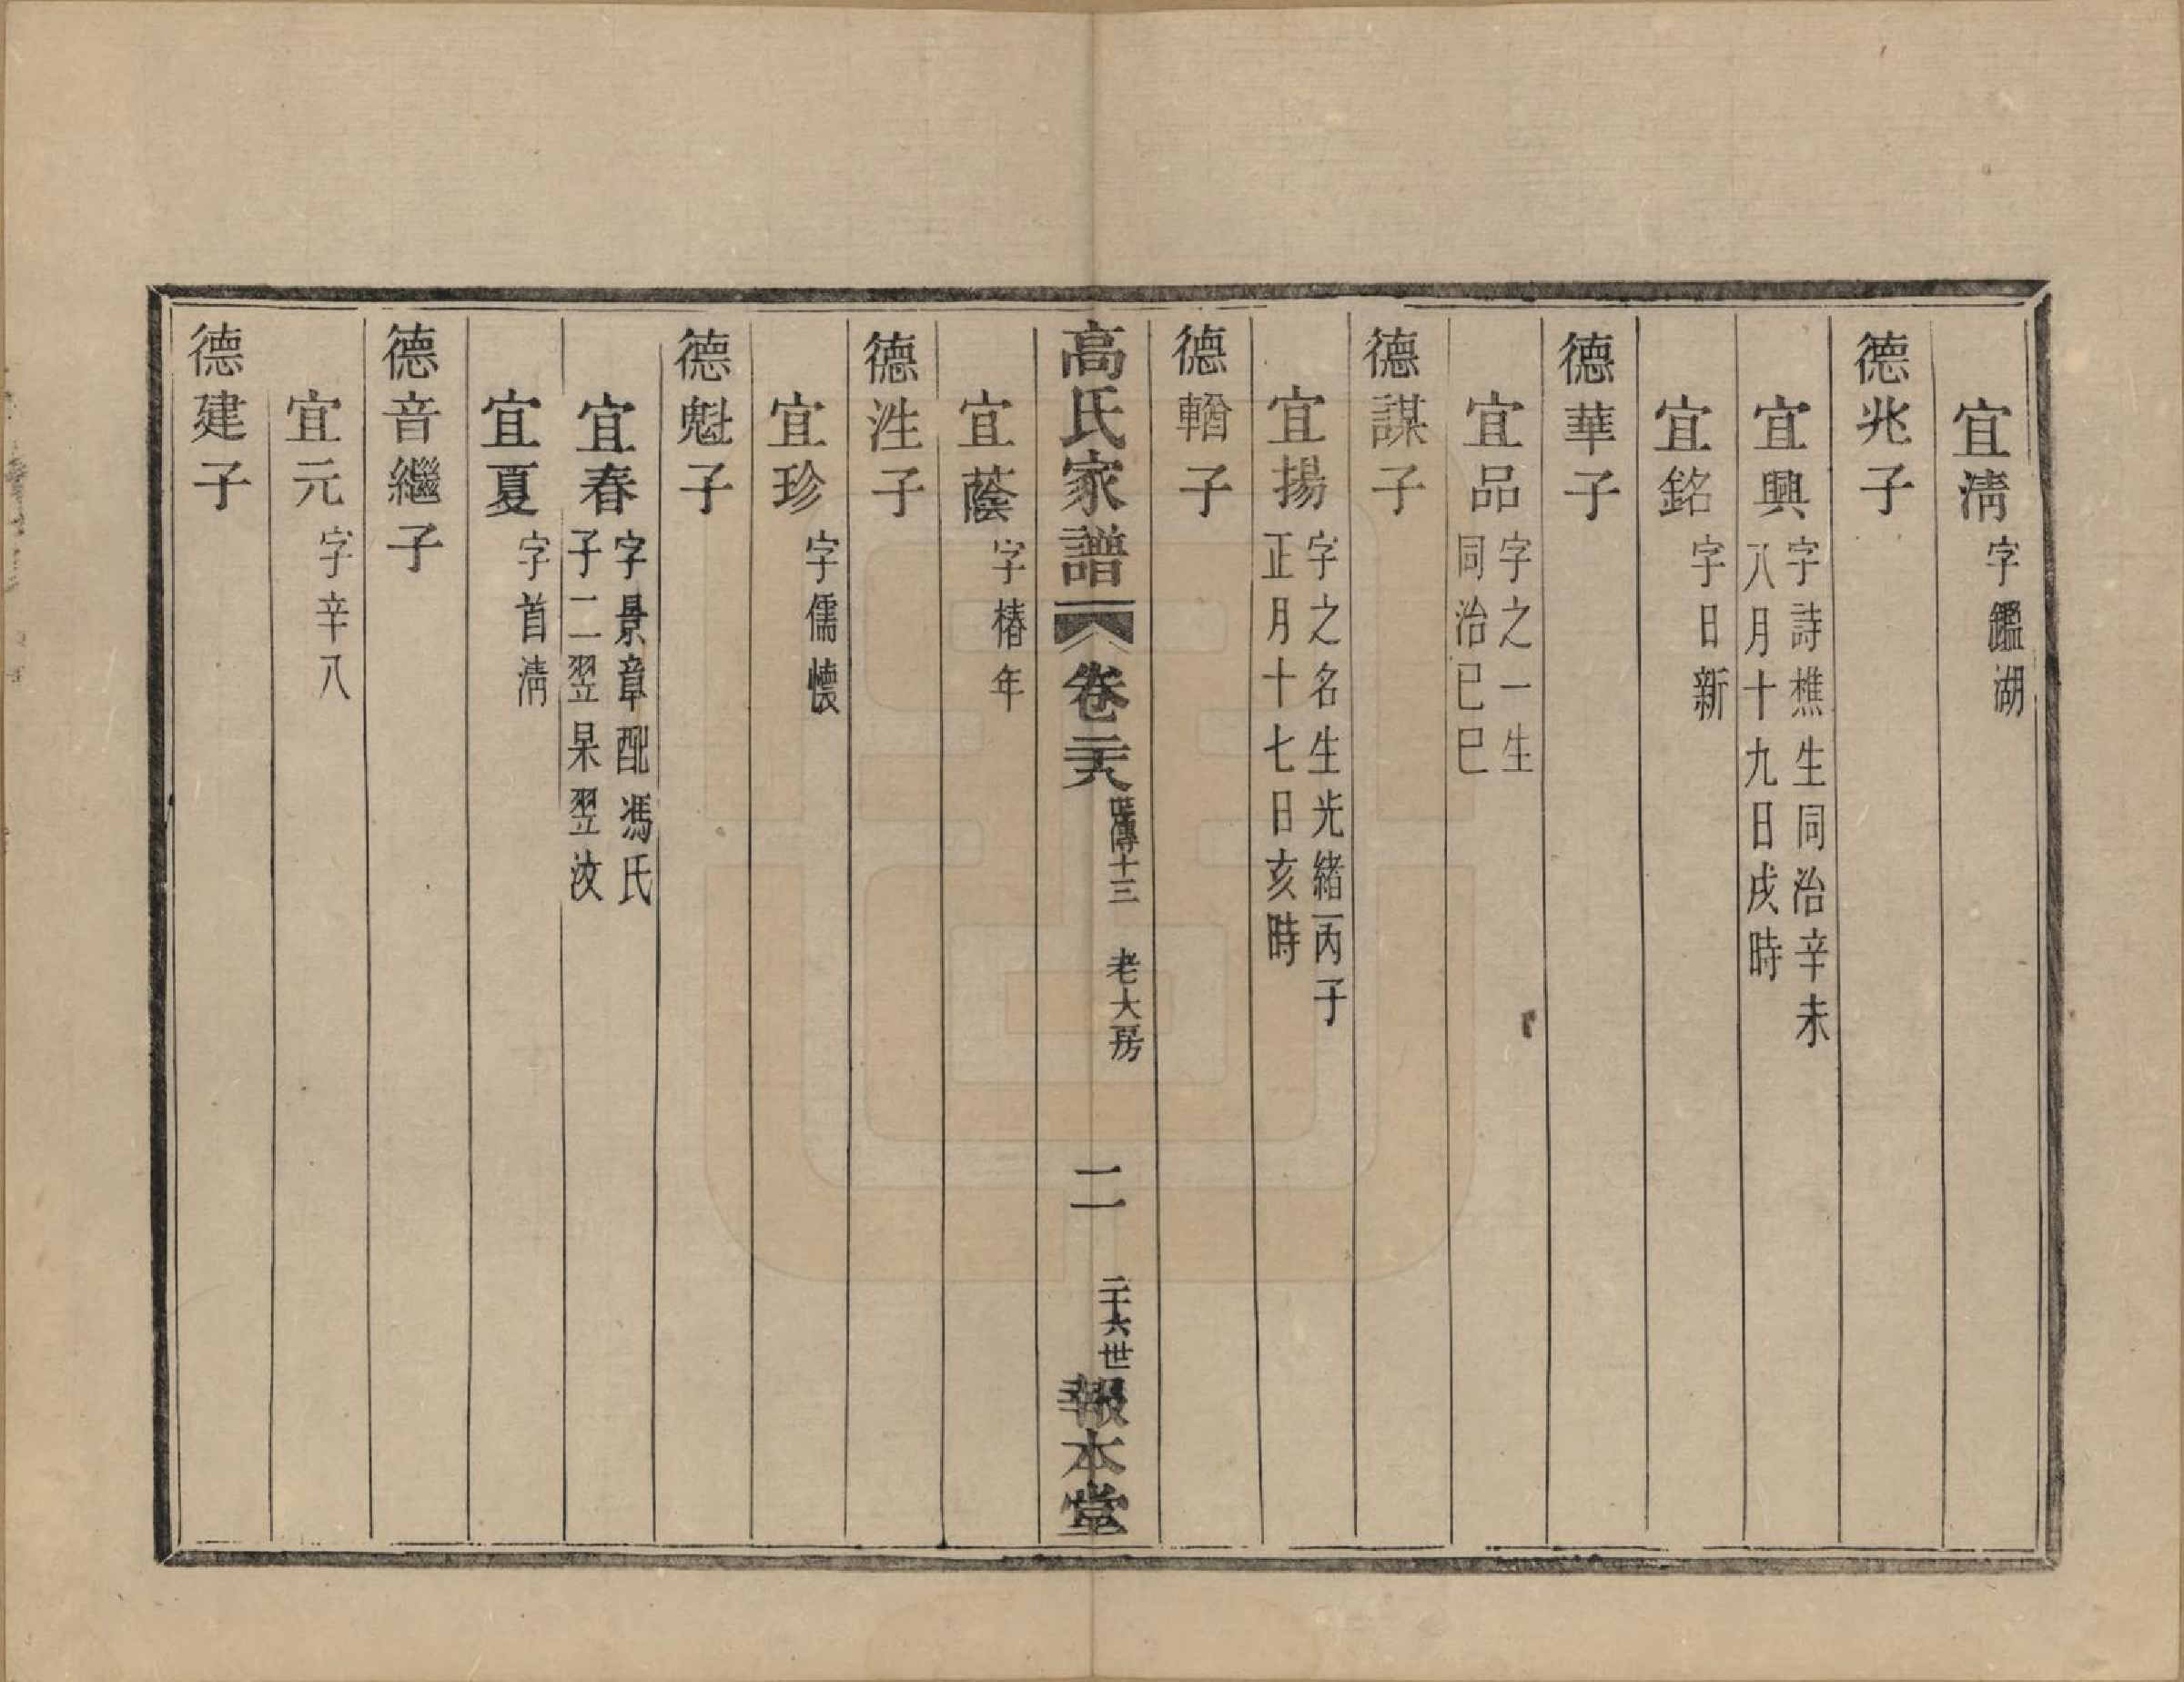 宜清 字鑑湖
德兆子
宜興 字詩樵生同治辛未
八月十九日戌時
宜銘 字日新
德華子
宜品 字之一生
同治已巳
德謀子
宜揚 字之名生光緒丙子
正月十七日亥時
德輶子
高氏家譜 卷二十八 世傳十三 老大房 二 二十六世 報本堂
宜蔭 字椿年
德泩子
宜珍 字儒懷
德魁子
宜春 字景章配馮氏
子二翌杲翌汶
宜夏 字首清
德音繼子
宜元 字辛八
德建子